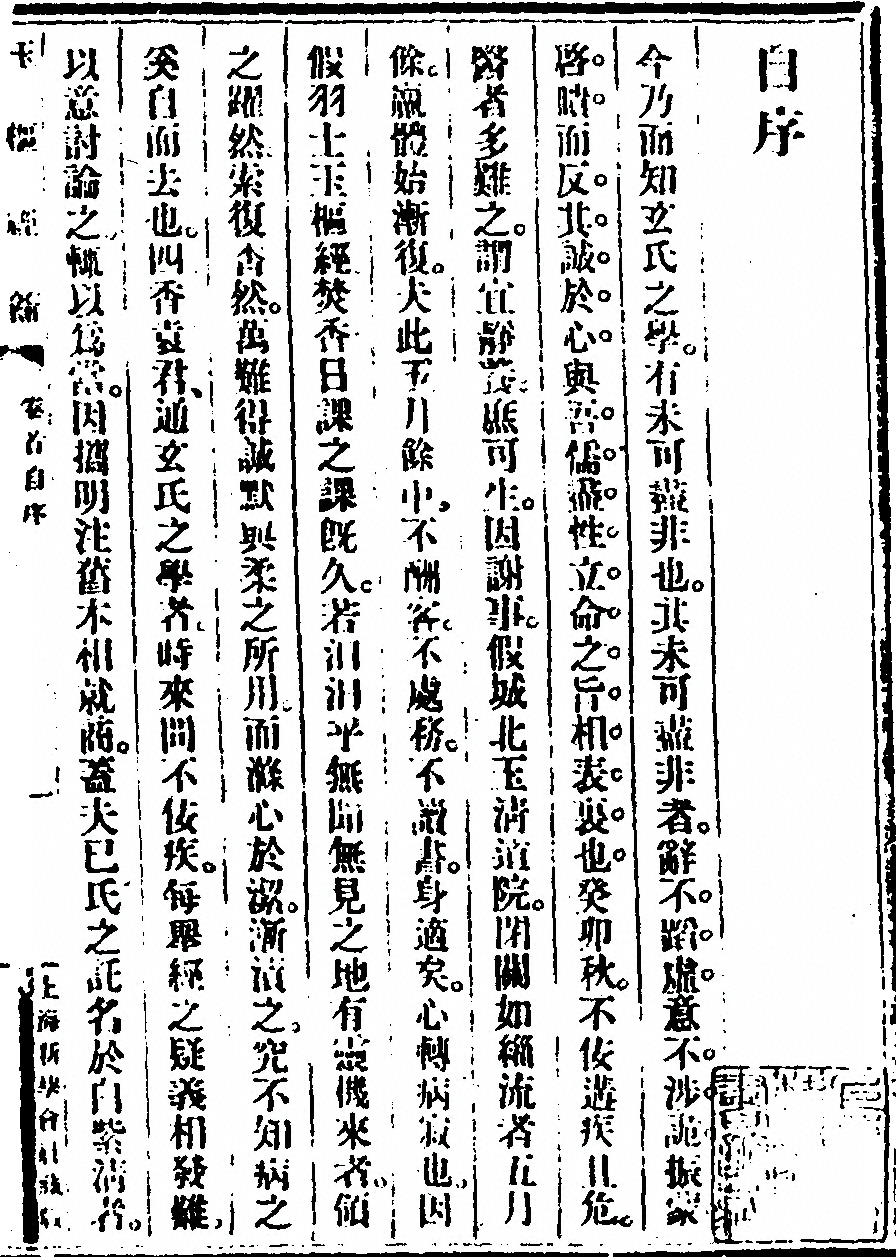 自序
今乃而知玄氏之學。有未可盡非也。其未可盡非者。辭不蹈虛。意不涉詭。振蒙
啓聵。而反其誠於心。與吾儒盡性立命之旨相表裏也。癸卯秋。不佞遘疾且危。
醫者多難之。謂宜靜養。應可生。因謝事。假城北玉清道院。閉關如緇流者五月
餘。羸體始漸復。夫此五月餘中、不酬客。不處務。不讀書。身適矣。心轉病寂也。因
假羽士玉樞經焚香日課之課既久。若汩汩乎無聞無見之地有靈機來者。領
之躍然索復杳然。萬難得誠默與柔之所用。而滌心於潔。漸漬之。究不知病之
奚自而去也。四香袁君、通玄氏之學者。時來問不佞疾。每舉經之疑義相發難。
以意討論之輒以爲當。因攜明注舊本相就商。蓋夫已氏之託名於白紫清者。
玉樞經籥
卷首自序
一
上海